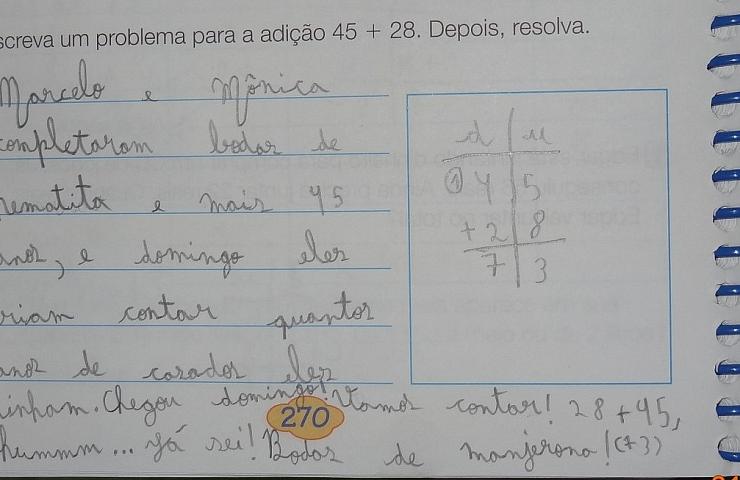 screva um problema para a adição 45 + 28. Depois, resolva.
Marcelo e Mônica
completaram bodas de
hematita e mais 45
anos, e domingo eles
riam contar quantos
anos de casados eles
tinham. Chegou domingo! Vamos contar! 28 + 45,
hummm... já sei! Bodas de manjerona! (73)
d u
1 4 5
+ 2 8
7 3
270